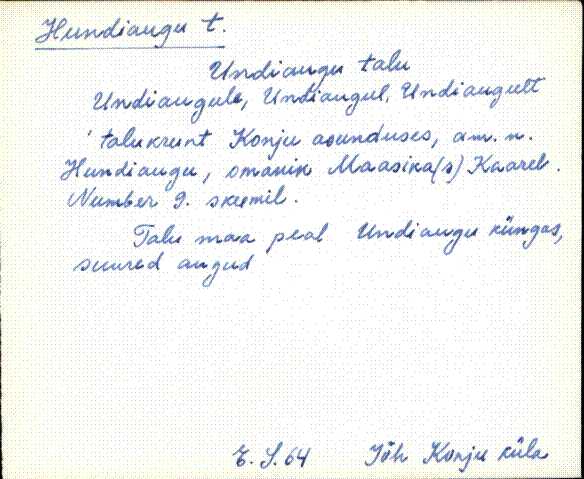 Hundiaugu t.
Undiaugu talu
Undiaugule, Undiaugul, Undiaugult
' talukrunt Konju asunduses, am. n.
Hundiaugu, omanik Maasika(s) Kaarel.
Number 9. skeemil.
Talu maa peal Undiaugu küngas,
suured augud
E. S. 64 Jõh Konju küla